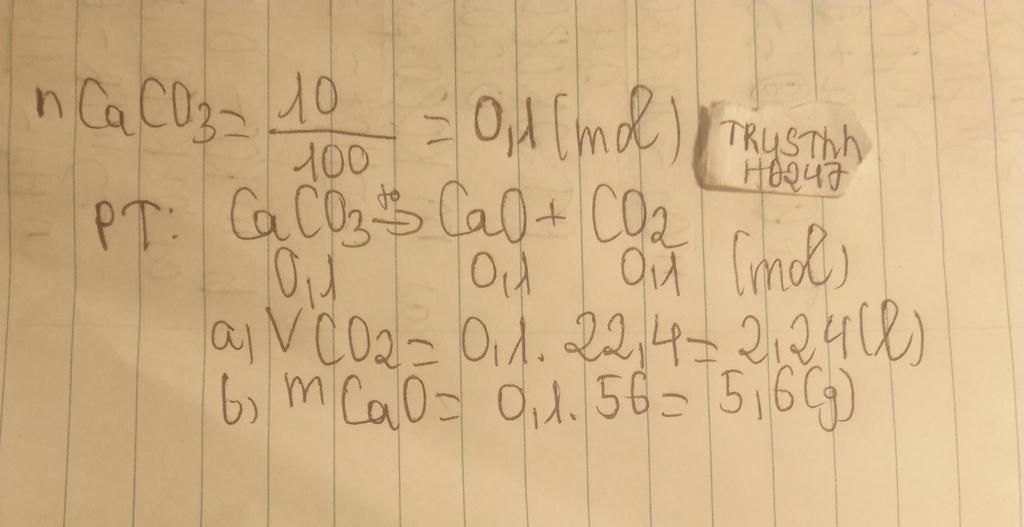 nCaCO3 = 10/100 = 0,1 (mol)
TRYSThh
HD247
PT: CaCO3 t° → CaO + CO2
0,1 0,1 0,1 (mol)
a, VCO2 = 0,1. 22,4 = 2,24 (l)
b, mCaO = 0,1. 56 = 5,6 (g)